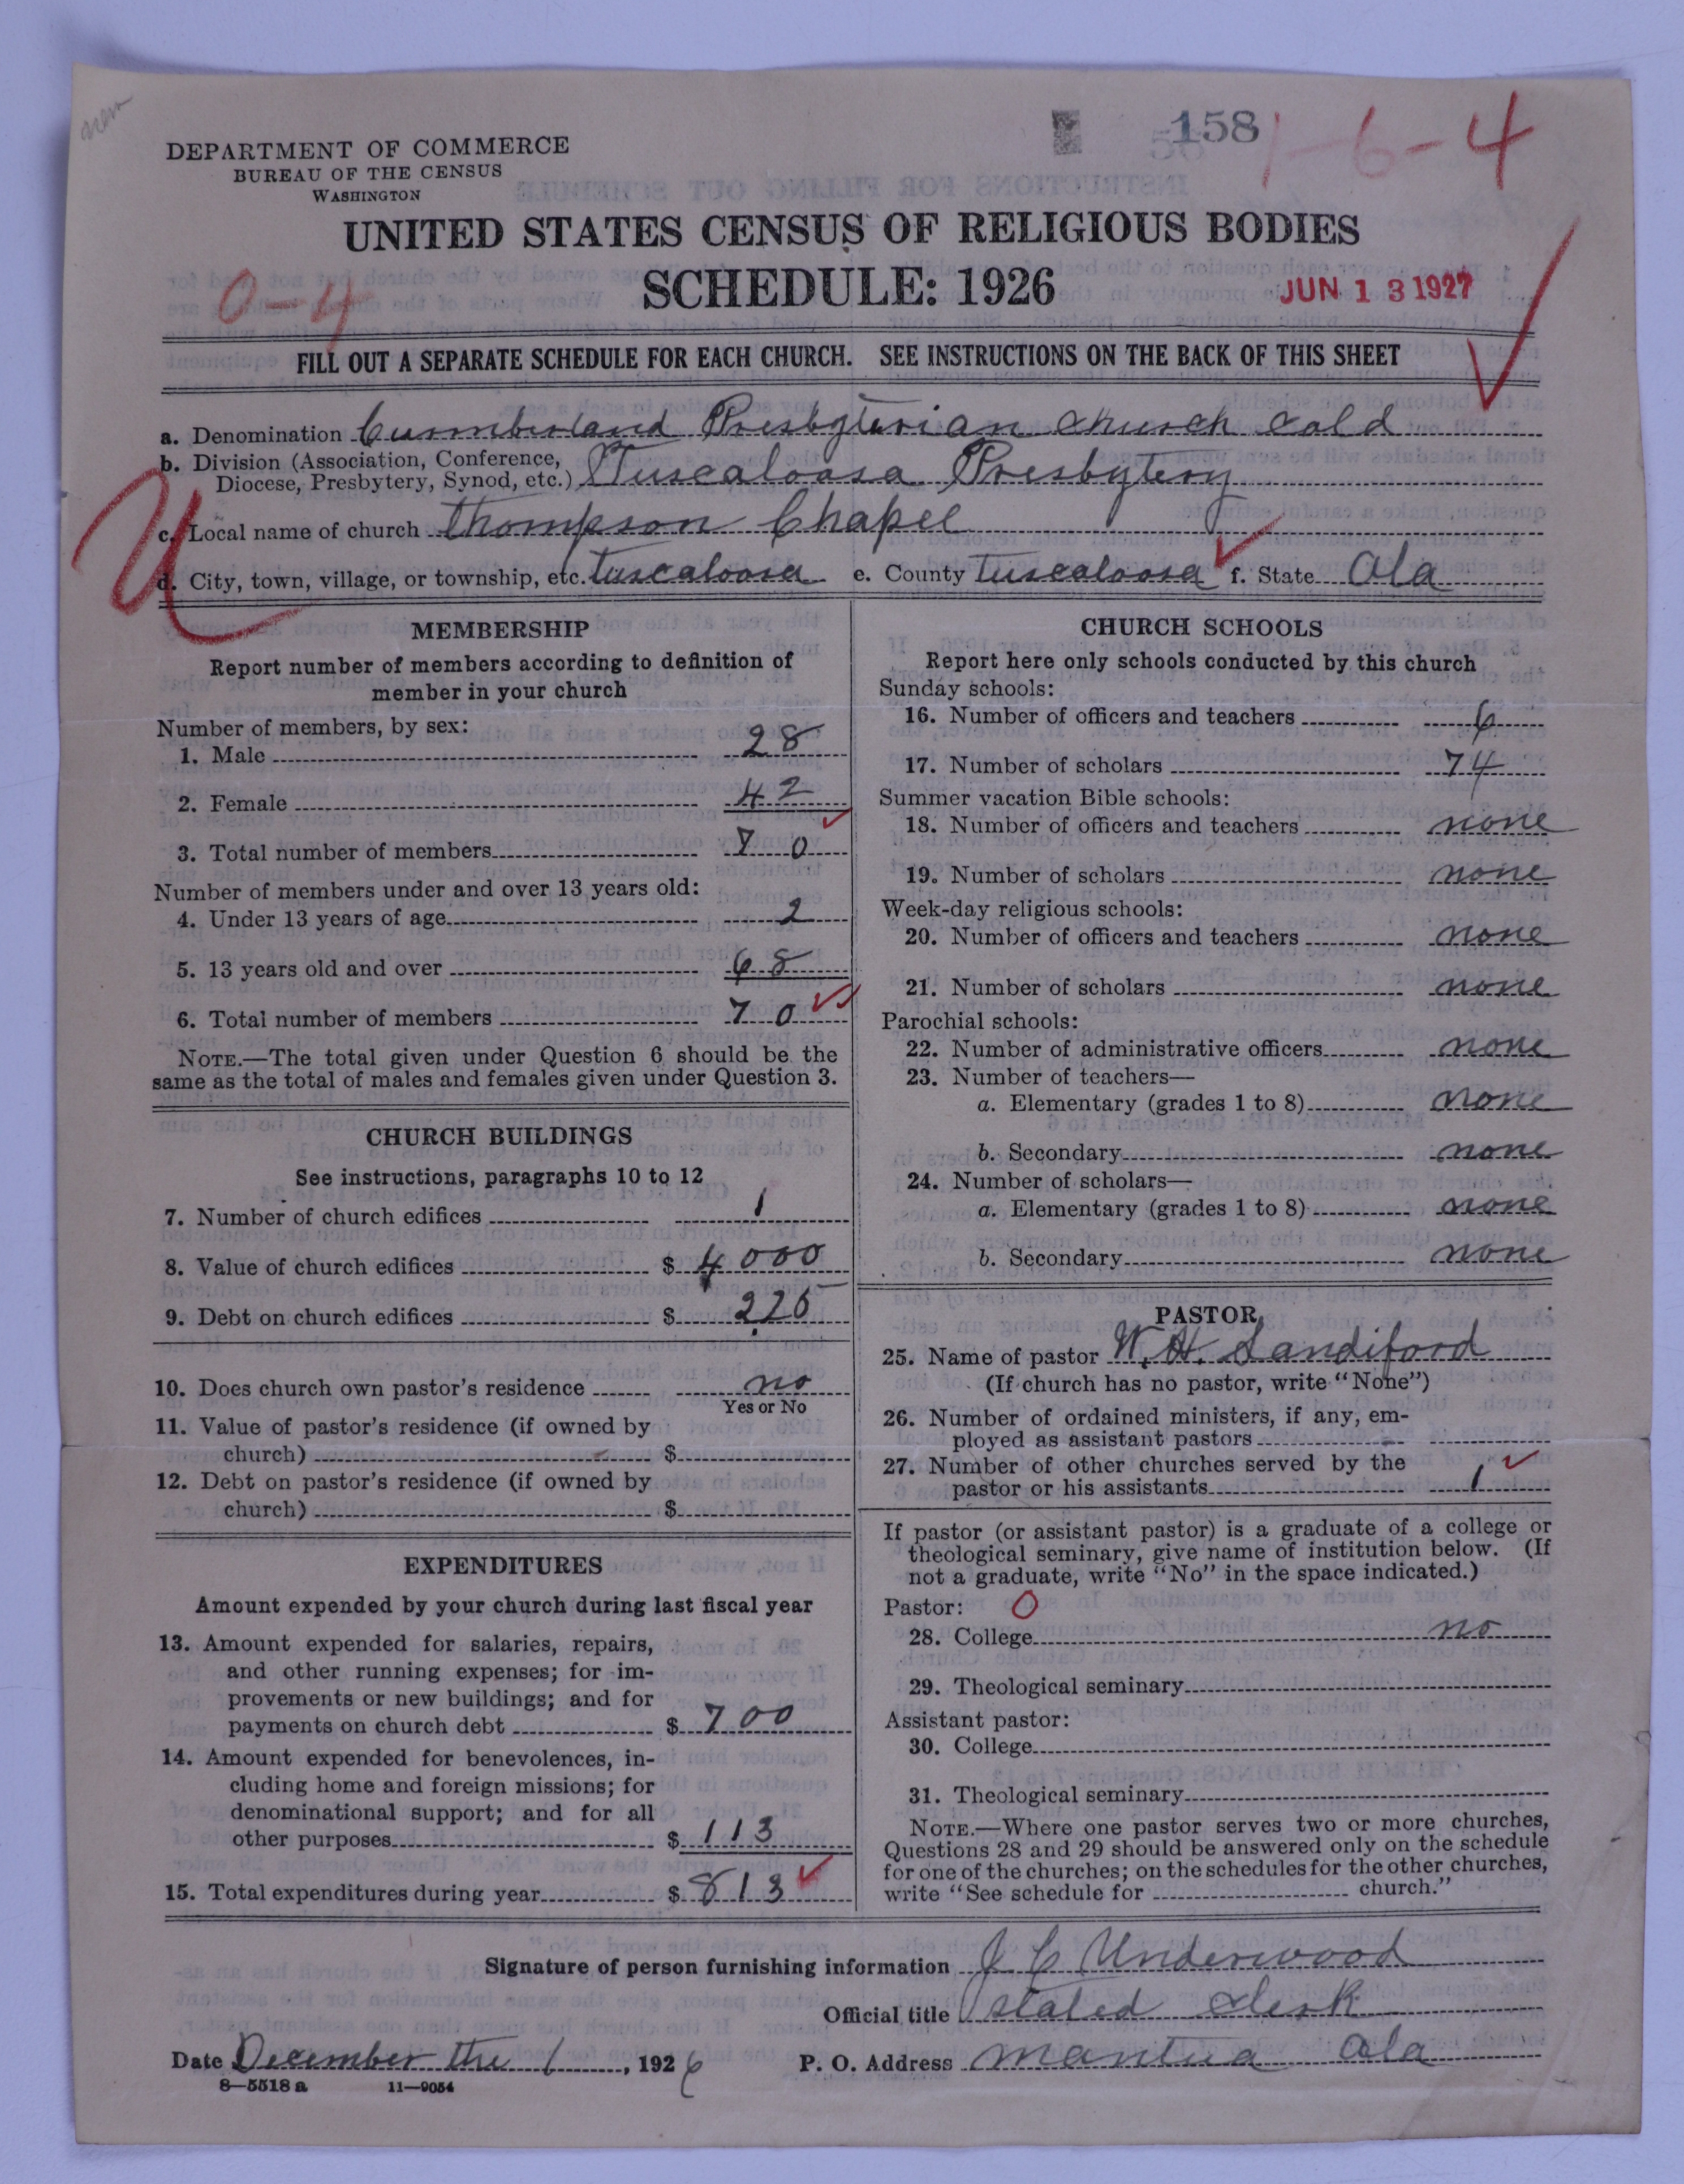 new
158
1-6-4
DEPARTMENT OF COMMERCE
BUREAU OF THE CENSUS
WASHINGTON
UNITED STATES CENSUS OF RELIGIOUS BODIES
SCHEDULE: 1926
JUN 13 1927
0-4
FILL OUT A SEPARATE SCHEDULE FOR EACH CHURCH. SEE INSTRUCTIONS ON THE BACK OF THIS SHEET
a. Denomination Cumberland Presbyterian church Cold
b. Division (Association, Conference,
Diocese, Presbytery, Synod, etc.) Tuscaloosa Presbytery
U
c. Local name of church thompson Chapel
d. City, town, village, or township, etc. tuscaloosa e. County tuscaloosa f. State Ala
MEMBERSHIP
Report number of members according to definition of
member in your church
Number of members, by sex:
1. Male 28
2. Female 42
3. Total number of members 70
Number of members under and over 13 years old:
4. Under 13 years of age 2
5. 13 years old and over 68
6. Total number of members 70
NOTE.—The total given under Question 6 should be the
same as the total of males and females given under Question 3.
CHURCH BUILDINGS
See instructions, paragraphs 10 to 12
7. Number of church edifices 1
8. Value of church edifices $ 4000
9. Debt on church edifices $ 225
10. Does church own pastor's residence no
Yes or No
11. Value of pastor's residence (if owned by
church) $
12. Debt on pastor's residence (if owned by
church) $
EXPENDITURES
Amount expended by your church during last fiscal year
13. Amount expended for salaries, repairs,
and other running expenses; for im-
provements or new buildings; and for
payments on church debt $ 700
14. Amount expended for benevolences, in-
cluding home and foreign missions; for
denominational support; and for all
other purposes $ 113
15. Total expenditures during year $ 813
CHURCH SCHOOLS
Report here only schools conducted by this church
Sunday schools:
16. Number of officers and teachers 6
17. Number of scholars 74
Summer vacation Bible schools:
18. Number of officers and teachers none
19. Number of scholars none
Week-day religious schools:
20. Number of officers and teachers none
21. Number of scholars none
Parochial schools:
22. Number of administrative officers none
23. Number of teachers—
a. Elementary (grades 1 to 8) none
b. Secondary none
24. Number of scholars—
a. Elementary (grades 1 to 8) none
b. Secondary none
PASTOR
25. Name of pastor W. H. Sandiford
(If church has no pastor, write "None")
26. Number of ordained ministers, if any, em-
ployed as assistant pastors
27. Number of other churches served by the
pastor or his assistants 1
If pastor (or assistant pastor) is a graduate of a college or
theological seminary, give name of institution below. (If
not a graduate, write "No" in the space indicated.)
Pastor: 0
28. College no
29. Theological seminary
Assistant pastor:
30. College
31. Theological seminary
NOTE.—Where one pastor serves two or more churches,
Questions 28 and 29 should be answered only on the schedule
for one of the churches; on the schedules for the other churches,
write "See schedule for church."
Signature of person furnishing information J C Underwood
Official title stated clerk
Date December the 1, 1926 P. O. Address mantua Ala
8—5518 a 11—9054